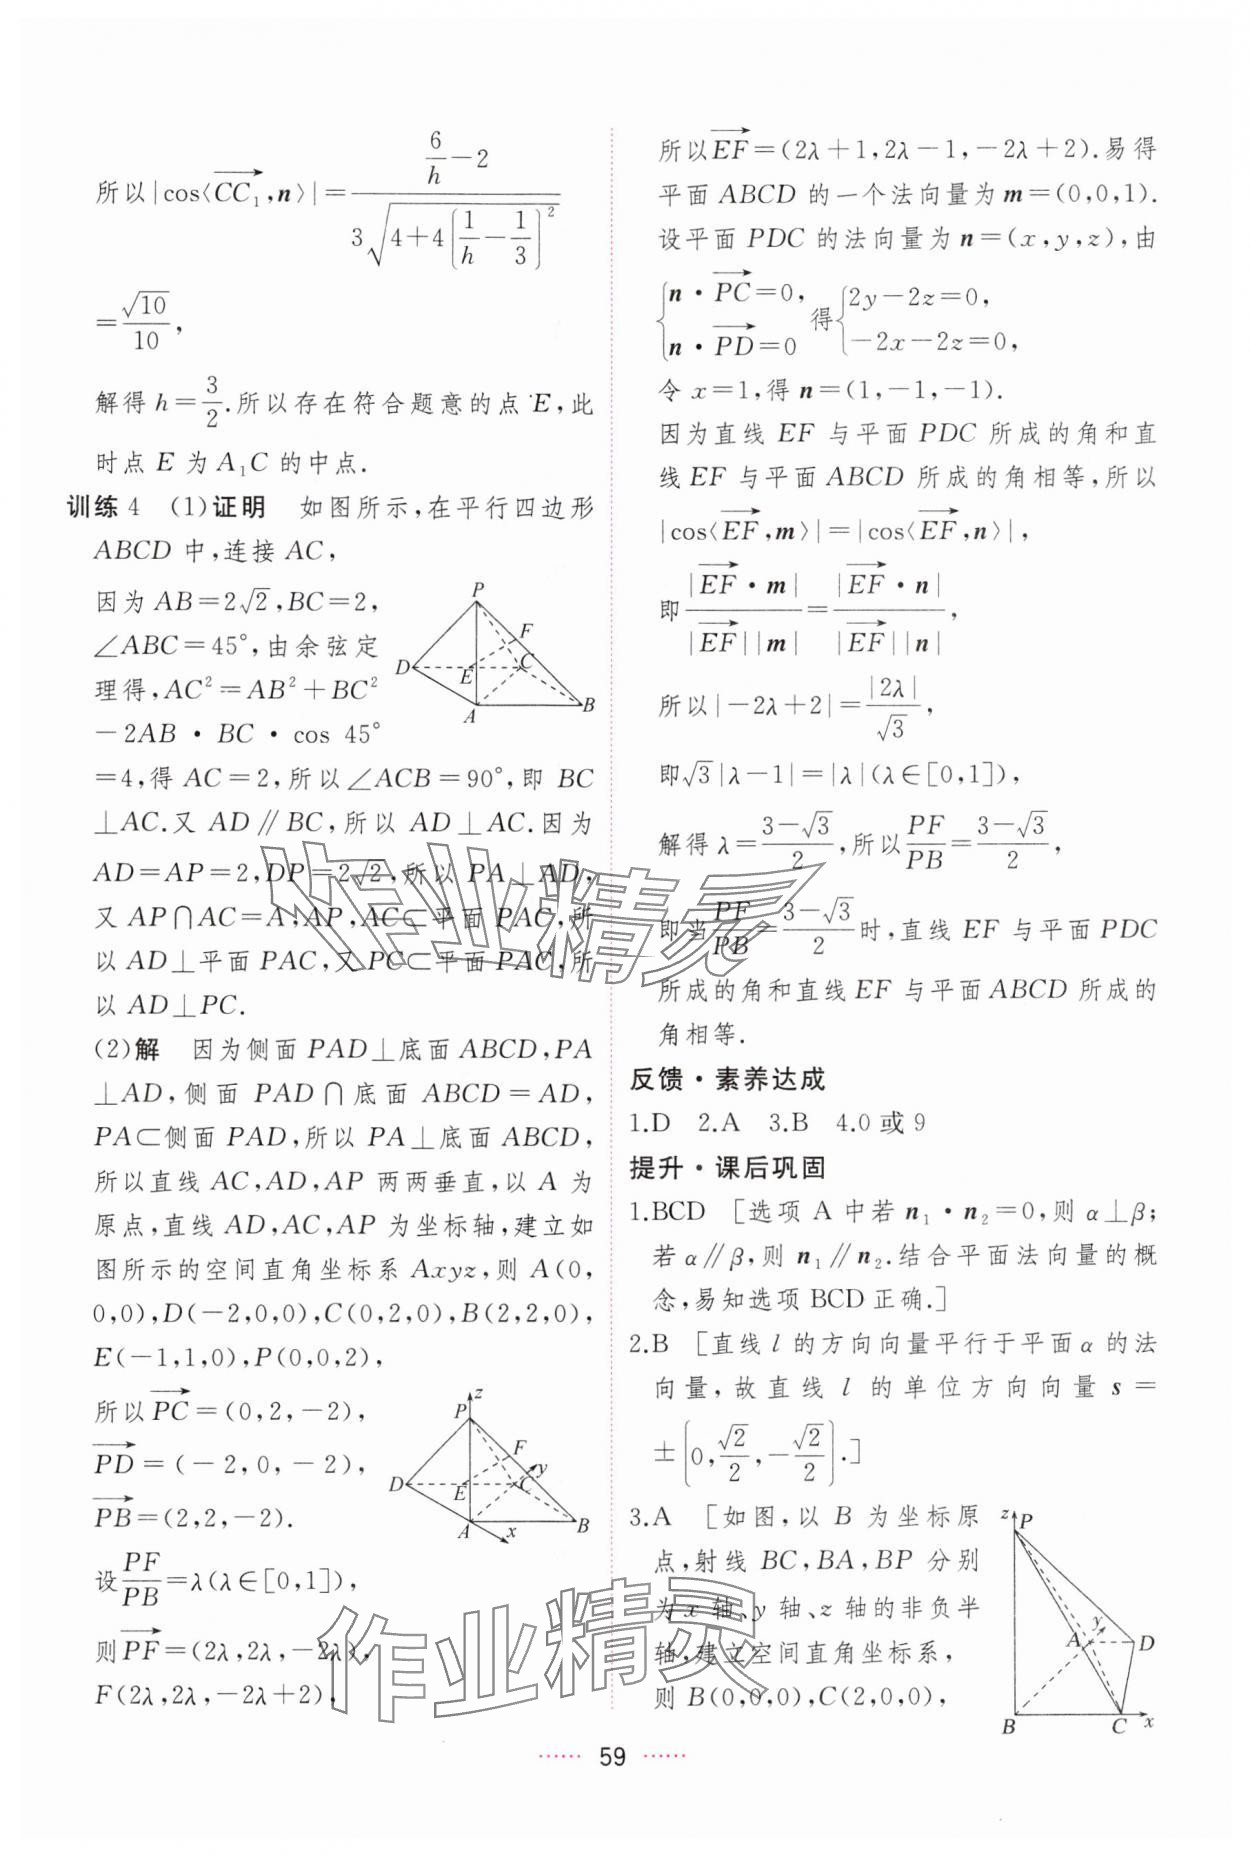 所以|cos⟨CC₁,n⟩|=(6/h-2)/(3√(4+4(1/h-1/3)²))
=√10/10,
解得 h=3/2.所以存在符合题意的点 E,此
时点 E 为 A₁C 的中点.
训练 4 (1)证明 如图所示,在平行四边形
ABCD 中,连接 AC,
因为 AB=2√2,BC=2,
∠ABC=45°,由余弦定
理得,AC²=AB²+BC²
-2AB·BC·cos 45°
P
F
D
E
C
A
B
=4,得 AC=2,所以∠ACB=90°,即 BC
⊥AC.又 AD∥BC,所以 AD⊥AC.因为
AD=AP=2,DP=2√2,所以 PA⊥AD,
又 AP∩AC=A,AP,AC⊂平面 PAC,所
以 AD⊥平面 PAC,又 PC⊂平面 PAC,所
以 AD⊥PC.
(2)解 因为侧面 PAD⊥底面 ABCD,PA
⊥AD,侧面 PAD∩底面 ABCD=AD,
PA⊂侧面 PAD,所以 PA⊥底面 ABCD,
所以直线 AC,AD,AP 两两垂直,以 A 为
原点,直线 AD,AC,AP 为坐标轴,建立如
图所示的空间直角坐标系 Axyz,则 A(0,
0,0),D(-2,0,0),C(0,2,0),B(2,2,0),
E(-1,1,0),P(0,0,2),
所以PC=(0,2,-2),
PD=(-2,0,-2),
PB=(2,2,-2).
设PF/PB=λ(λ∈[0,1]),
则PF=(2λ,2λ,-2λ),
F(2λ,2λ,-2λ+2),
z
P
F
y
D
E
C
A
x
B
所以EF=(2λ+1,2λ-1,-2λ+2).易得
平面 ABCD 的一个法向量为 m=(0,0,1).
设平面 PDC 的法向量为 n=(x,y,z),由
{n·PC=0, n·PD=0 得{2y-2z=0, -2x-2z=0,
令 x=1,得 n=(1,-1,-1).
因为直线 EF 与平面 PDC 所成的角和直
线 EF 与平面 ABCD 所成的角相等,所以
|cos⟨EF,m⟩|=|cos⟨EF,n⟩|,
即|EF·m|/|EF||m|=|EF·n|/|EF||n|,
所以|-2λ+2|=|2λ|/√3,
即√3|λ-1|=|λ|(λ∈[0,1]),
解得 λ=(3-√3)/2,所以PF/PB=(3-√3)/2,
即当PF/PB=(3-√3)/2时,直线 EF 与平面 PDC
所成的角和直线 EF 与平面 ABCD 所成的
角相等.
反馈·素养达成
1.D 2.A 3.B 4.0 或 9
提升·课后巩固
1.BCD [选项 A 中若 n₁·n₂=0,则 α⊥β;
若 α∥β,则 n₁∥n₂.结合平面法向量的概
念,易知选项 BCD 正确.]
2.B [直线 l 的方向向量平行于平面 α 的法
向量,故直线 l 的单位方向向量 s=
±(0,√2/2,-√2/2).]
3.A [如图,以 B 为坐标原
点,射线 BC,BA,BP 分别
为 x 轴、y 轴、z 轴的非负半
轴,建立空间直角坐标系,
则 B(0,0,0),C(2,0,0),
z
P
y
A
D
B
C
x
59
作业精灵
作业精灵